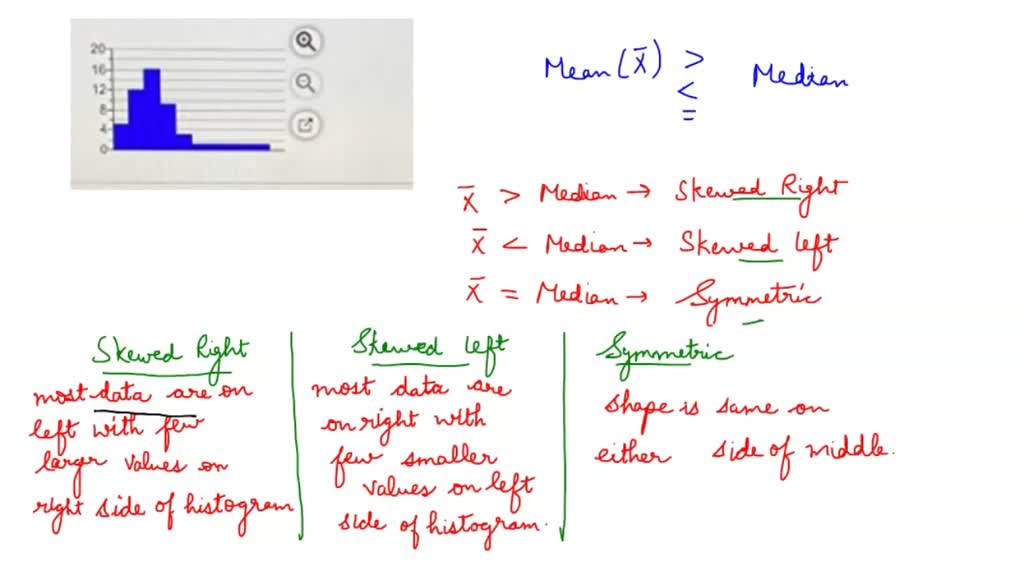 20
16
12
8
4
0
Mean (x̄) > Median
<
=
x̄ > Median → Skewed Right
x̄ < Median → Skewed left
x̄ = Median → Symmetric
Skewed Right
most data are on
left with few
larger values on
right side of histogram
Skewed left
most data are
on right with
few smaller
values on left
side of histogram.
Symmetric
shape is same on
either side of middle.